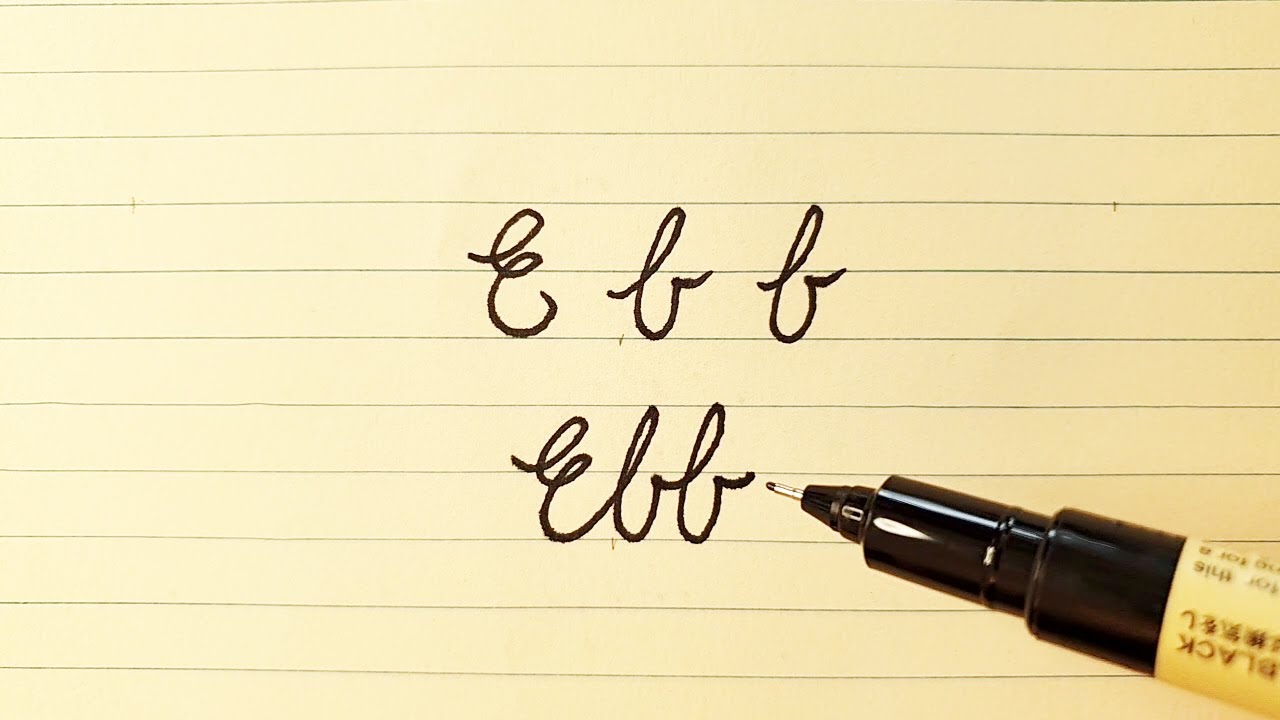 E b b
Ebb
for this
BLACK